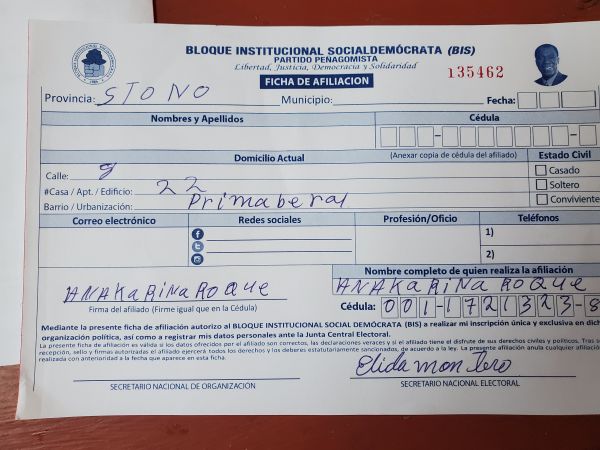 BLOQUE INSTITUCIONAL SOCIALDEMÓCRATA (BIS)
PARTIDO PEÑAGOMISTA
Libertad, Justicia, Democracia y Solidaridad
FICHA DE AFILIACION
135462
Provincia: STO NO Municipio: Fecha:
Nombres y Apellidos Cédula
Domicilio Actual (Anexar copia de cédula del afiliado) Estado Civil
Calle: 9 Casado
#Casa / Apt. / Edificio: 22 Soltero
Barrio / Urbanización: Primaberal Conviviente
Correo electrónico Redes sociales Profesión/Oficio Teléfonos
1)
2)
Nombre completo de quien realiza la afiliación
ANAKARINA ROQUE ANAKARINA ROQUE
Firma del afiliado (Firme igual que en la Cédula) Cédula: 001-1721323-8
Mediante la presente ficha de afiliación autorizo al BLOQUE INSTITUCIONAL SOCIAL DEMÓCRATA (BIS) a realizar mi inscripción única y exclusiva en dich
organización política, así como a registrar mis datos personales ante la Junta Central Electoral.
La presente ficha de afiliación es valida si los datos ofrecidos por el afiliado son correctos, las declaraciones veraces y si el afiliado tiene el disfrute de sus derechos civiles y políticos. Tras s
recepción, sello y firmas autorizadas el afiliado ejercerá todos los derechos y los deberes estatutariamente sancionados, de acuerdo a la ley. La presente afiliación anula cualquier afiliación
realizada con anterioridad a la fecha que aparece en esta ficha.
Elida Montero
SECRETARIO NACIONAL DE ORGANIZACIÓN SECRETARIO NACIONAL ELECTORAL